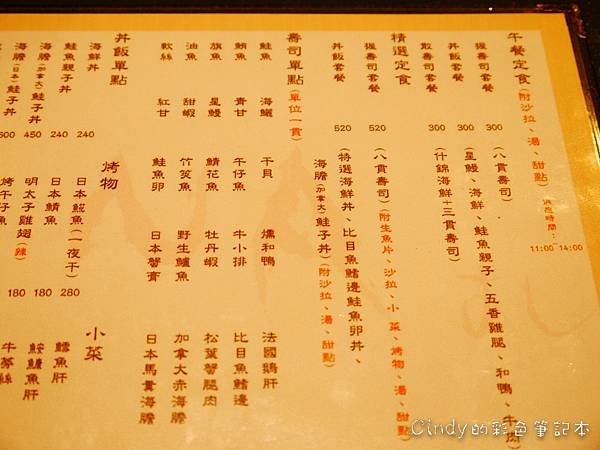 午餐定食(附沙拉、湯、甜點)
供應時間：
11:00~14:00
握壽司套餐 300 (八貫壽司)
丼飯套餐 300 (星鰻、海鮮、鮭魚親子、五香雞腿、和鴨、牛肉)
散壽司套餐 300 (什錦海鮮十三貫壽司)
精選定食
握壽司套餐 520 (八貫壽司)(附生魚片、沙拉、小菜、烤物、湯、甜點)
丼飯套餐 520 (特選海鮮丼、比目魚鰭邊鮭魚卵丼、
海膽(加拿大)鮭子丼)(附沙拉、湯、甜點)
壽司單點(單位一貫)
鮭魚 海鱺 干貝 燻和鴨 法國鵝肝
鮪魚 青甘 午仔魚 牛小排 比目魚鰭邊
旗魚 星鰻 鯖花魚 牡丹蝦 松葉蟹腿肉
油魚 甜蝦 竹筴魚 野生鱸魚 加拿大赤海膽
軟絲 紅甘 鮭魚卵 日本蟹膏 日本馬糞海膽
丼飯單點
海鮮丼 240
鮭魚親子丼 240
海膽(加拿大)鮭子丼 450
海膽(日本)鮭子丼 600
烤物
日本鯤魚(一夜干) 280
日本鯖魚 180
明太子雞翅(辣) 180
烤午仔魚
小菜
鱈魚肝
鮟鱇魚肝
牛蒡絲
Cindy的彩色筆記本